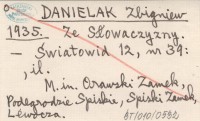 DANIELAK Zbigniew
1935. Ze Słowaczyzny.
- Światowid 12, nr 39:
, il.
M. in. Orawski Zamek,
Podegrodzie Spiskie, Spiski Zamek,
Lewocza.